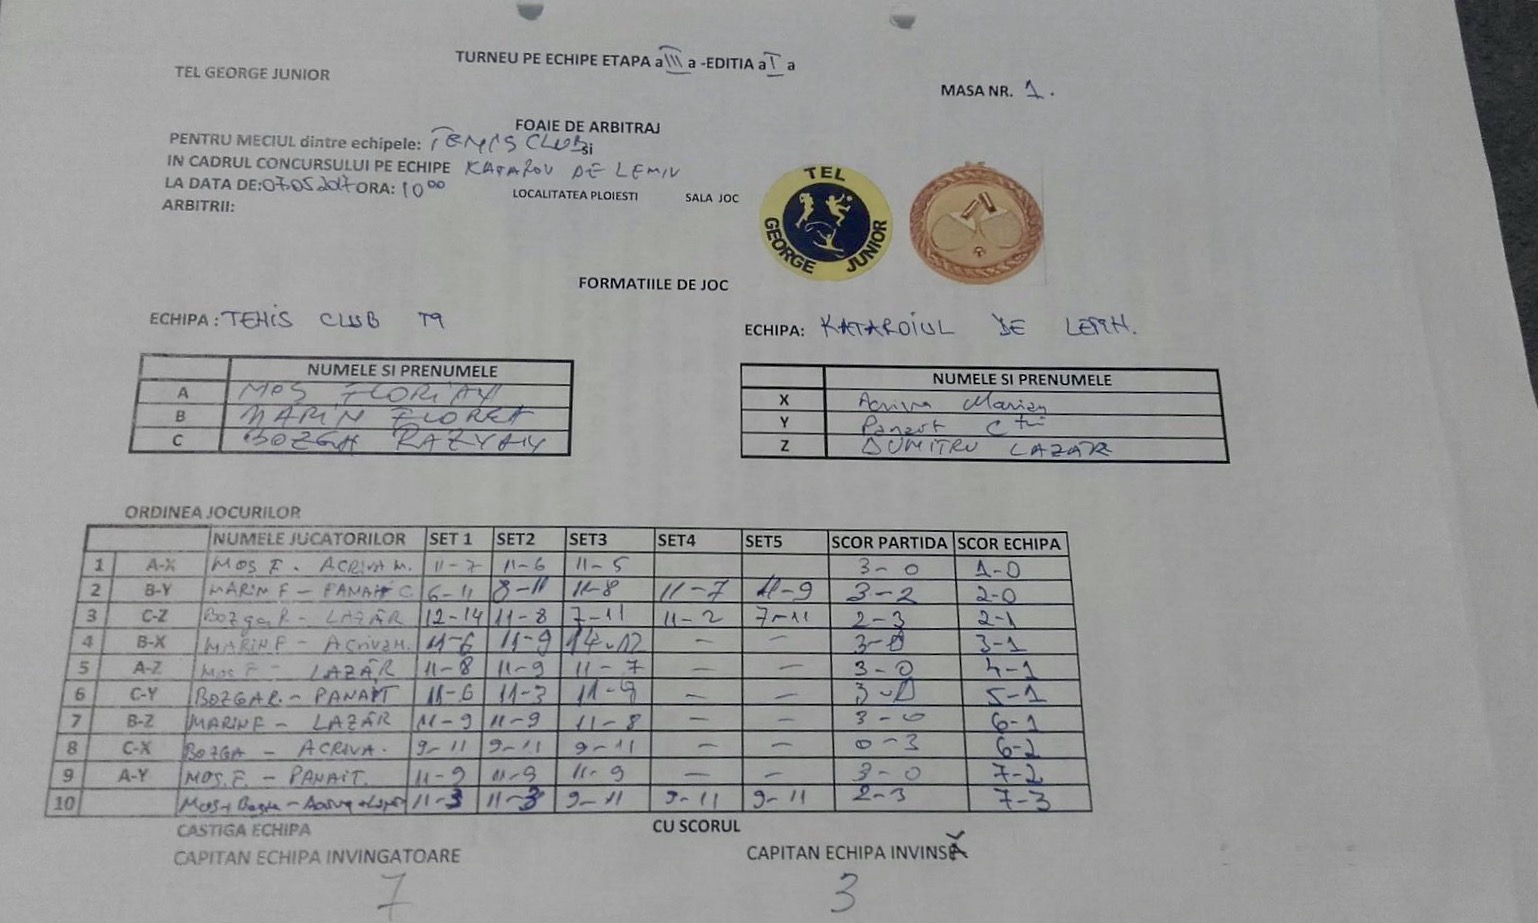 TURNEU PE ECHIPE ETAPA a III a -EDITIA a I a
TEL GEORGE JUNIOR
MASA NR. 1.
FOAIE DE ARBITRAJ
PENTRU MECIUL dintre echipele: TENIS CLUB si
IN CADRUL CONCURSULUI PE ECHIPE KATAROU DE LEMN
LA DATA DE:07.05.2017 ORA: 10 00 LOCALITATEA PLOIESTI SALA JOC
ARBITRII:
TEL
GEORGE JUNIOR
FORMATIILE DE JOC
ECHIPA : TENIS CLUB T9
ECHIPA: KATAROIUL DE LEMN.
NUMELE SI PRENUMELE
A MOS FLORIAN
B MARIN FLOREA
C BOZGA RAZVAN
NUMELE SI PRENUMELE
X Acriva Marian
Y Panait
Z DUMITRU LAZĂR
ORDINEA JOCURILOR
NUMELE JUCATORILOR SET 1 SET2 SET3 SET4 SET5 SCOR PARTIDA SCOR ECHIPA
1 A-X MOS F. ACRIVA M. 11-7 11-6 11-5 3-0 1-0
2 B-Y MARIN F - PANAIT C 6-11 8-11 11-8 11-7 11-9 3-2 2-0
3 C-Z Bozga R - LAZĂR 12-14 11-8 7-11 11-2 7-11 2-3 2-1
4 B-X MARIN F - ACRIVA M. 11-6 11-9 14-12 - - 3-0 3-1
5 A-Z Mos F - LAZĂR 11-8 11-9 11-7 - - 3-0 4-1
6 C-Y BOZGA R. - PANAIT 11-6 11-3 11-9 - - 3-0 5-1
7 B-Z MARIN F - LAZĂR 11-9 11-9 11-8 - - 3-0 6-1
8 C-X BOZGA - ACRIVA. 9-11 9-11 9-11 - - 0-3 6-2
9 A-Y MOS. F. - PANAIT. 11-9 11-9 11-9 - - 3-0 7-2
10 11-3 11-3 9-11 9-11 9-11 2-3 7-3
CASTIGA ECHIPA CU SCORUL
CAPITAN ECHIPA INVINGATOARE CAPITAN ECHIPA INVINSĂ
7 3